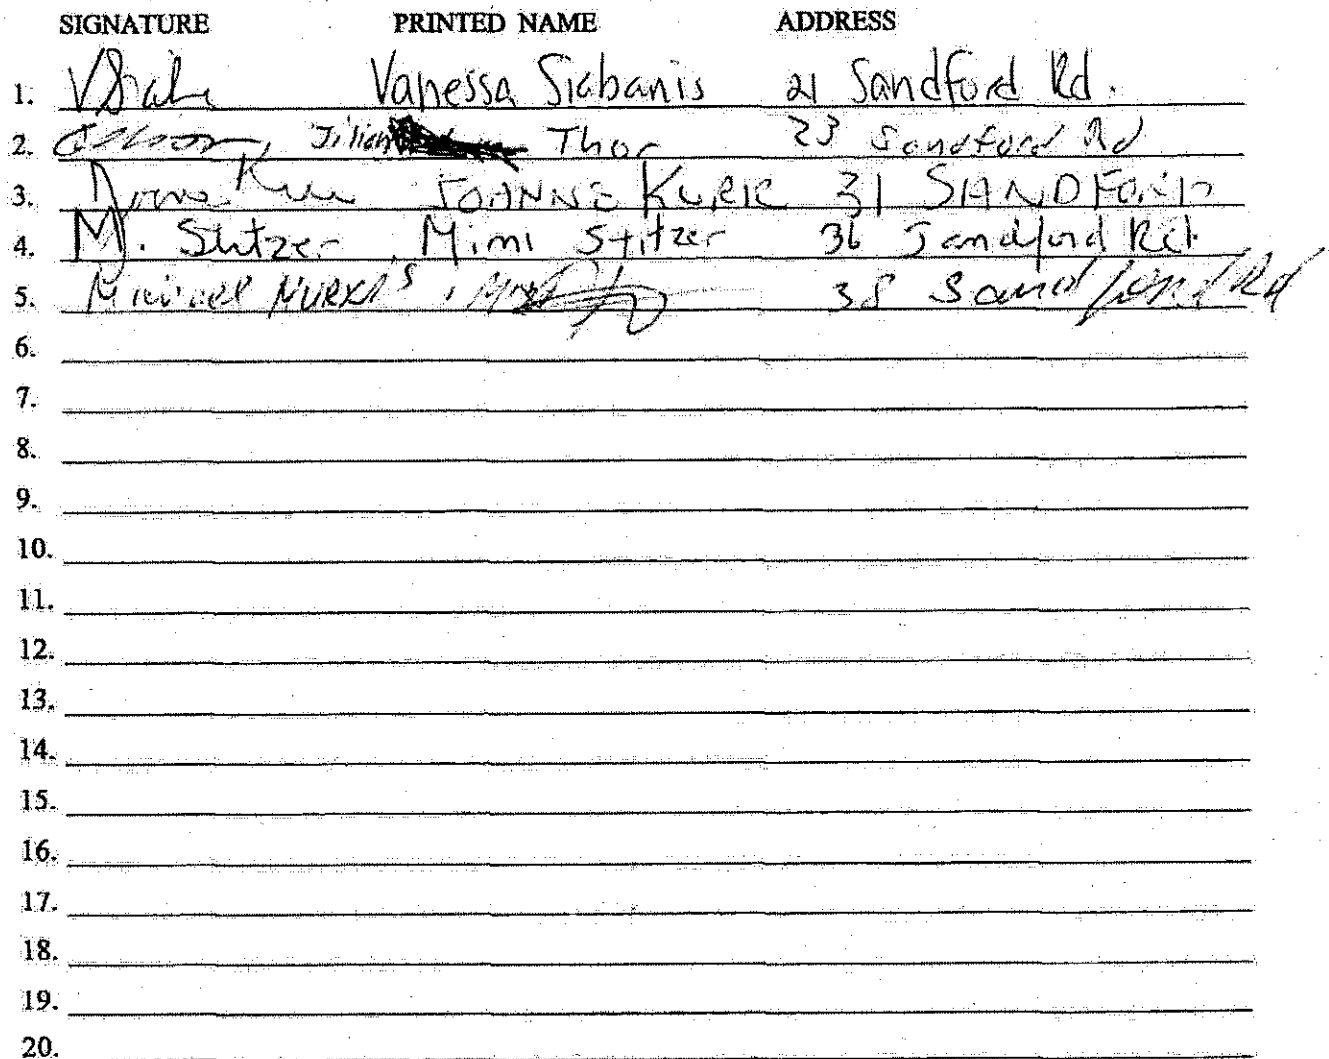 SIGNATURE PRINTED NAME ADDRESS
1. Vanessa Siabanis 21 Sandford Rd.
2. Jilian Thor 23 Sandford Rd
3. JOANNE KURIC 31 SANDFORD
4. M. Stitzer Mimi Stitzer 36 Sandford Rd.
5. Michael 38 Sandford Rd
6.
7.
8.
9.
10.
11.
12.
13.
14.
15.
16.
17.
18.
19.
20.